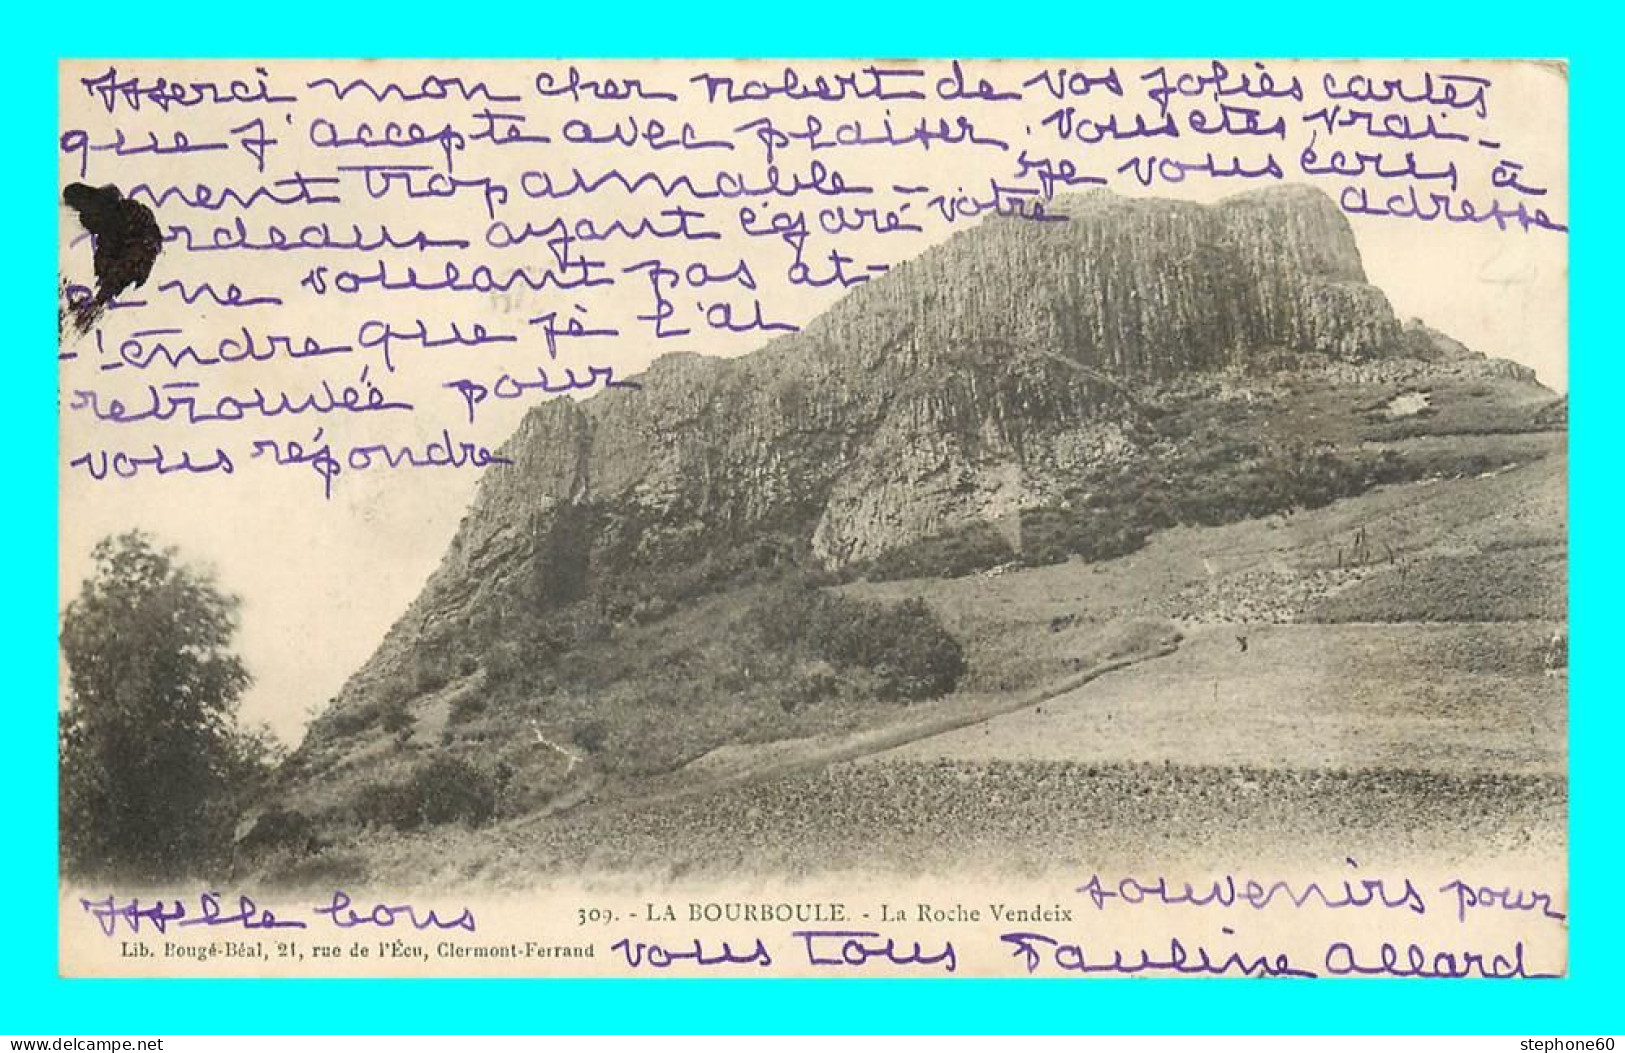 Merci mon cher robert de vos jolies cartes
que j'accepte avec plaiser. Vous etes vrai-
ment trop aimable - je vous écris à
rdeaux ayant égaré votre adresse
ne voulant pas at-
t'endre que je l'ai
retrouvée pour
vous répondre
Mille bons souvenirs pour
vous tous Pauline Allard
309. - LA BOURBOULE. - La Roche Vendeix
Lib. Bougé-Béal, 21, rue de l'Écu, Clermont-Ferrand
delcampe.net
stephone60